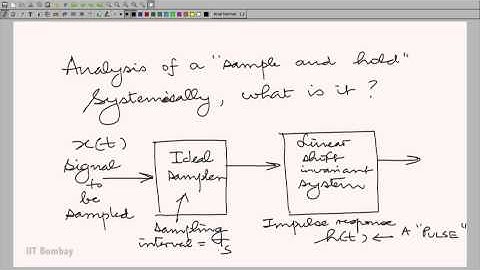 Analysis of a "sample and hold"
Systemically, what is it?
x(t)
signal
to
be
sampled
Ideal
sampler
Sampling
interval =
Linear
shift
invariant
system
Impulse response
h(t) ← A "PULSE"
IIT Bombay